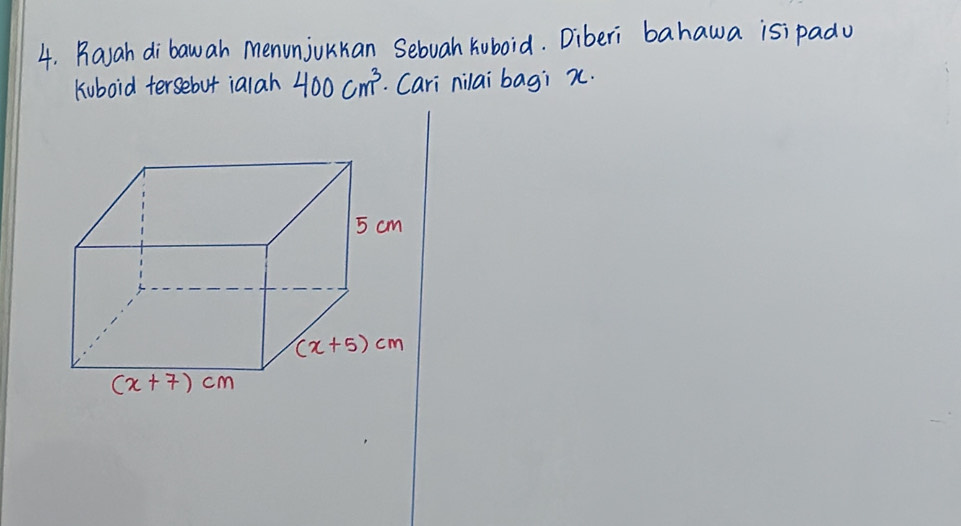 4. Rajah di bawah menunjukkan sebuah kuboid. Diberi bahawa isipadu
kuboid tersebut ialah 400 cm³. Cari nilai bagi x.
5 cm
(x+5) cm
(x+7) cm